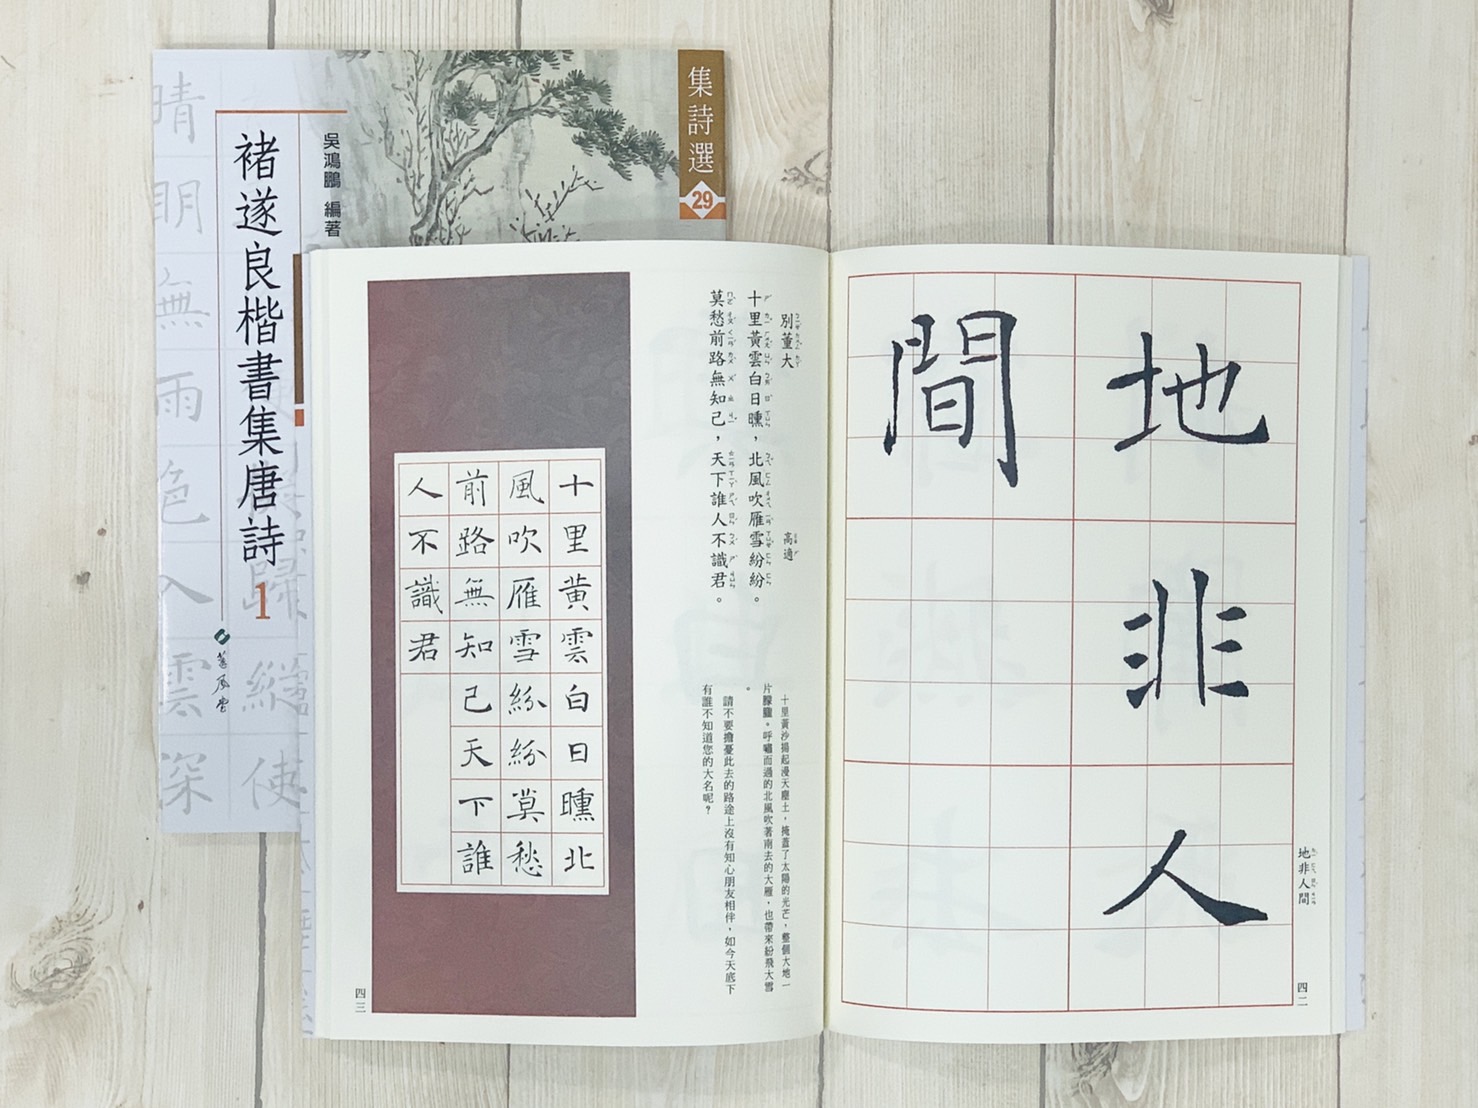 集詩選
29
吳鴻鵬 編著
褚遂良楷書集唐詩
1
晴明無雨色入雲深
地非人
間
地非人間
四二
別董大 高適
十里黃雲白日曛，北風吹雁雪紛紛。
莫愁前路無知己，天下誰人不識君。
十里黃沙揚起漫天塵土，掩蓋了太陽的光芒，整個大地一
片朦朧。呼嘯而過的北風吹著南去的大雁，也帶來紛飛大雪
。
請不要擔憂此去的路途上沒有知心朋友相伴，如今天底下
有誰不知道您的大名呢？
十里黃雲白日曛北
風吹雁雪紛紛莫愁
前路無知己天下誰
人不識君
四三